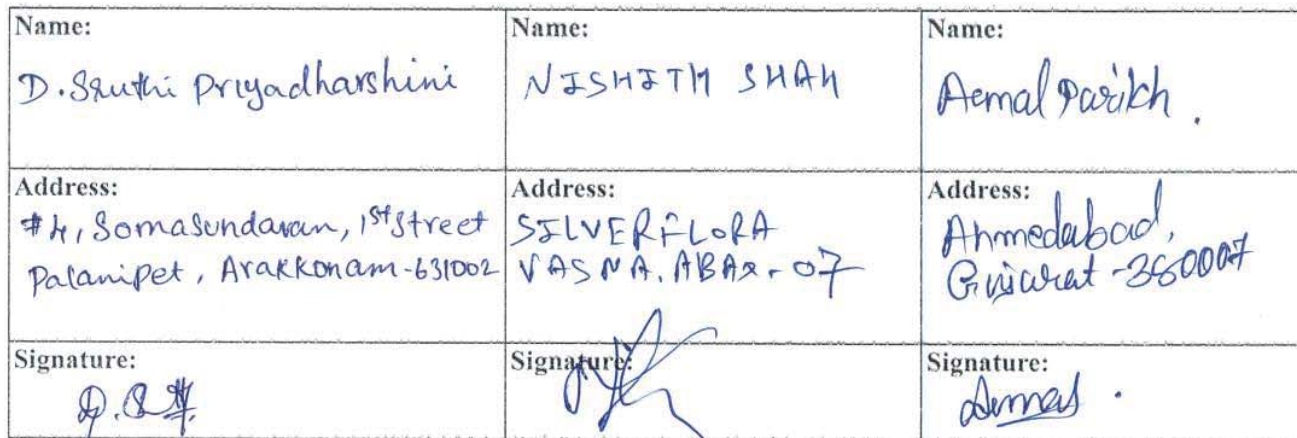 Name:
D. Sruthi Priyadharshini
Name:
NISHITH SHAH
Name:
Aemal Parikh.
Address:
#4, Somasundaran, 1st Street
Palanipet, Arakkonam-631002
Address:
SILVERFLORA
VASNA. ABAD-07
Address:
Ahmedabad,
Gujarat -380007
Signature:
Signature:
Signature: